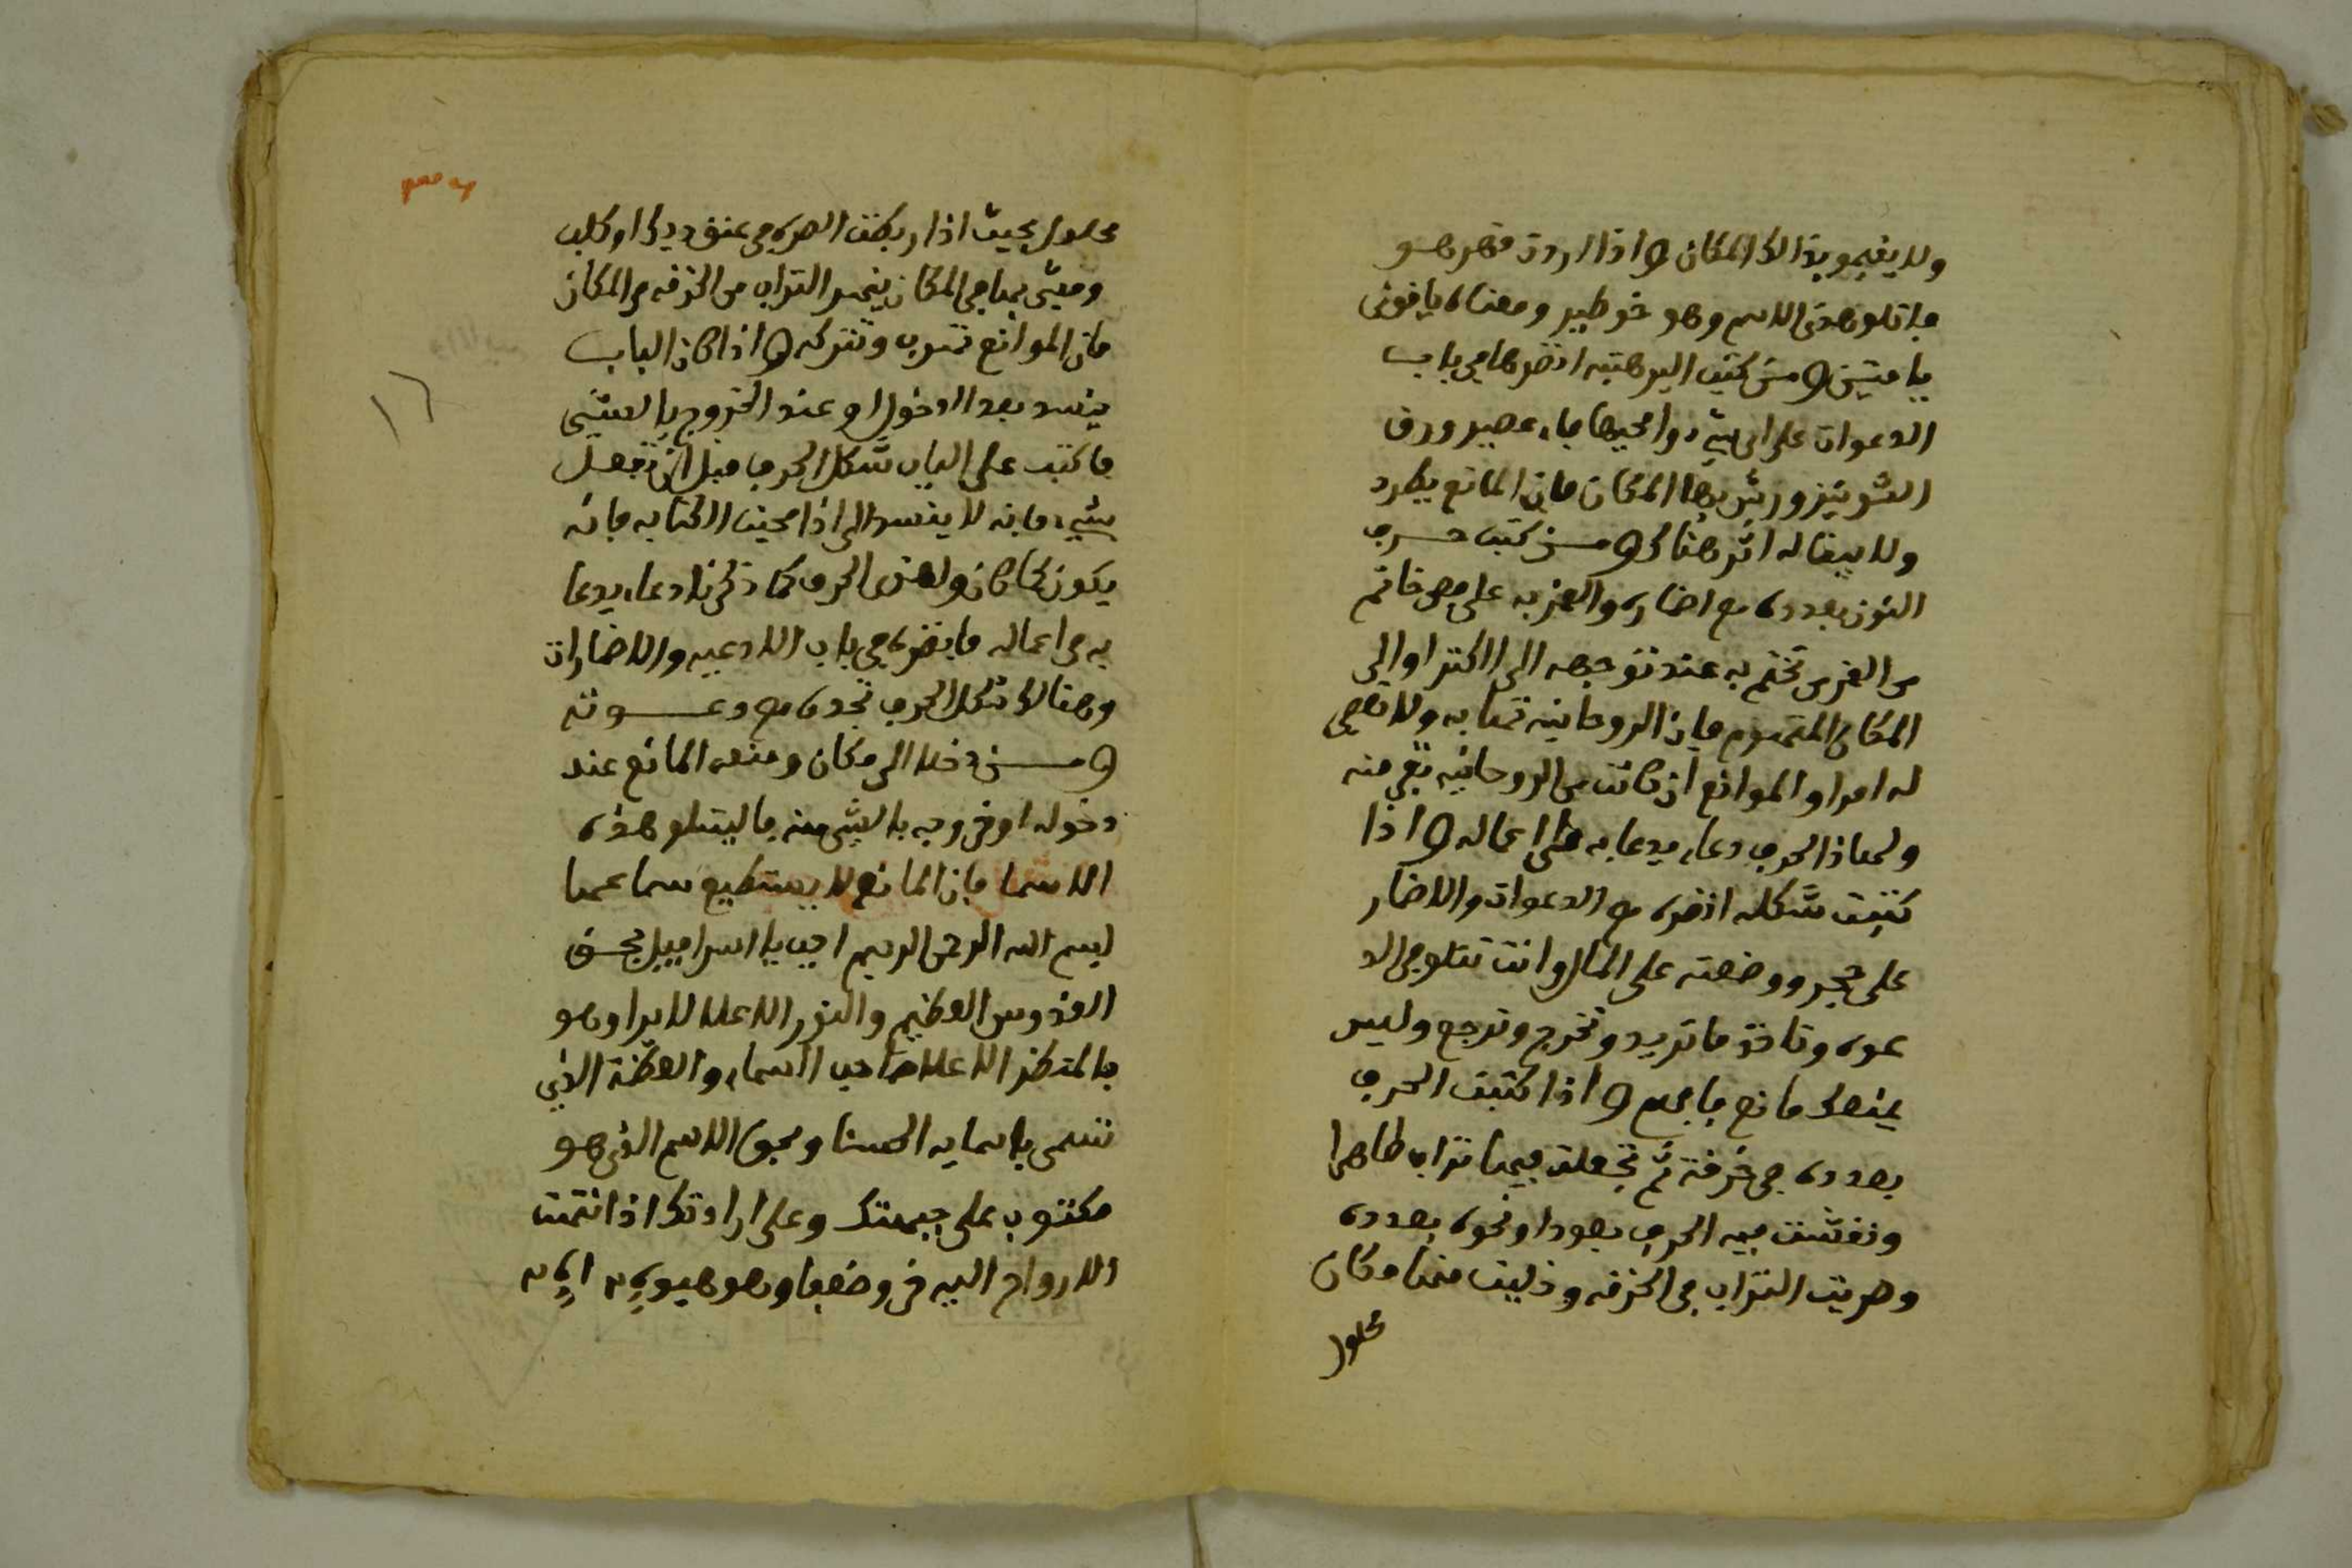 ولا يقيمو بذالك المكان واذا اردت قهرهـو
فاتلو هذى الاسم وهو خوطير ومعناه يا قوى
يا متين ومن كتب البرهتيه انضرها فى باب
الدعوات على اى شيء وامحيها بماء عصير ورق
الشونيز ورش بها المكان فان المانع يطرد
ولا يبقا له اثر هناك ومـن كتب حـرف
النون بعدده مع اضماره والعزبه على فص خاتم
من الغز من تختم به عند توجهه الى الكنز او الى
المكان المتهوم فان الروحانيه تهابه ولا تعصى
له امرا والموانع ان كانت من الروحانيه تفر منه
ولهاذا الحرف دعاء يدعا به على اعماله واذا
كتبت شكله انضره مع الدعوات والاضمار
على حجر ووضعته على المال وانت تتلو فى الد
عوه وتاخذ ما تريد وتخرج وترجع وليس
يمنعك مانع فافهم واذا كتبت الحرف
بعدده فى خرقة ثم تجعلت فيها تراب طاهرا
ونقشت فيه الحرف بعودا ونحوه بعدده
وصريت التراب فى الخرقه وخليت منها مكان
محلول
محلول بحيث اذا ربطت الصره فى عنق ديك او كلب
ومشى بها فى المكان ينهر التراب من الخرقه فى المكان
فان الموانع تهرب وتتركه واذا كان الباب
ينسد بعد الدخول او عند الخروج بالعشى
فاكتب على الباب شكل الحرف قبل ان تفعل
شيء فانه لا ينسد الى اذا محيت الكتابه فانه
يكون كما كان ولهذى الحرف كما ذكرنا دعاء يدعا
به فى اعماله فانضره فى باب الادعيه والاضمارات
وهنالك شكل الحرف تجده مع دعـوته
ومـن دخل الى مكان ومنعه المانع عند
دخوله او خروجه بالشى منه فاليتلو هذه
الاسما فان المانع لا يستطيع سماعها
بسم الله الرحمن الرحيم اجب يا اسرافيل بحـق
القدوس العظيم والنور الاعلا لا يرا وهو
بالمنظر الاعلا صاحب السماء والعظمة الذى
تسمى باسمايه الحسنا وبحق الاسم الذى هو
مكتوب على جبهتك وعلى ارادتك اذا نتهت
الارواح اليه فر وضعها وهو هيويه ايه